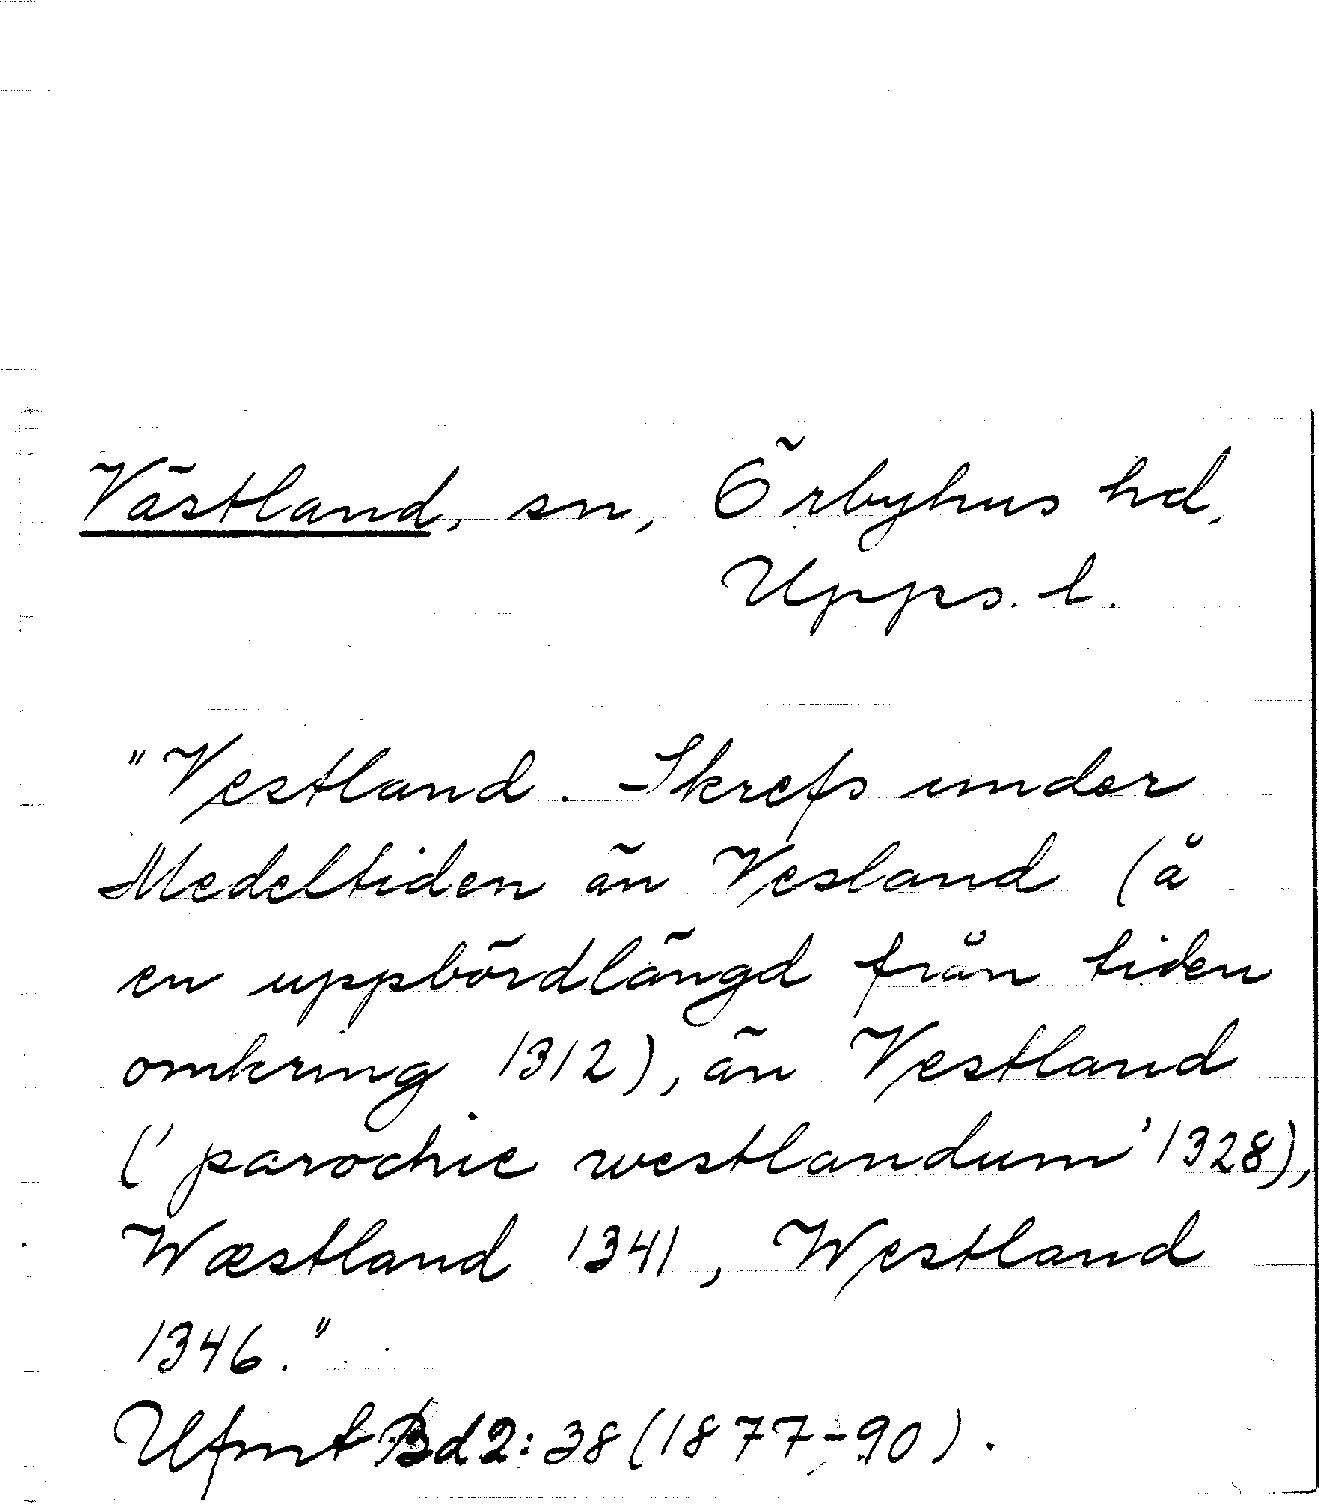 Västland, sn, Örbyhus hd,
Upps. l.
"Vestland. Skrefs under
Medeltiden än Vesland (å
en uppbördlängd från tiden
omkring 1312), än Vestland
('parochie westlandum' 1328),
Wæstland 1341, Westland
1346."
Ufmt Bd 2: 38 (1877-90).